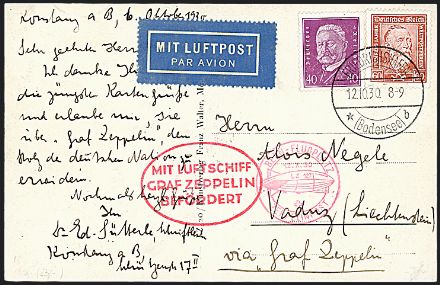 Konstanz a B, 6. Oktober 1930
Sehr geehrter Herr
Ich danke Ihnen
die jüngste Kartengrüße
und erlaube mir, Sie
über "Graf Zeppelin", den
Stolz der deutschen Nation, zu
erreichen.
Nochmals
Ihr
Dr. Ed.
Konstanz a B,
17 II
MIT LUFTPOST
PAR AVION
Franz Walter,
MIT LUFTSCHIFF
GRAF ZEPPELIN
BEFÖRDERT
40 40
Deutsches Reich
FRIEDRICHSHAFEN
12.10.30. 8-9
* (Bodensee) b
Herrn
Alois Negele
Vaduz (Liechtenstein)
via "Graf Zeppelin"